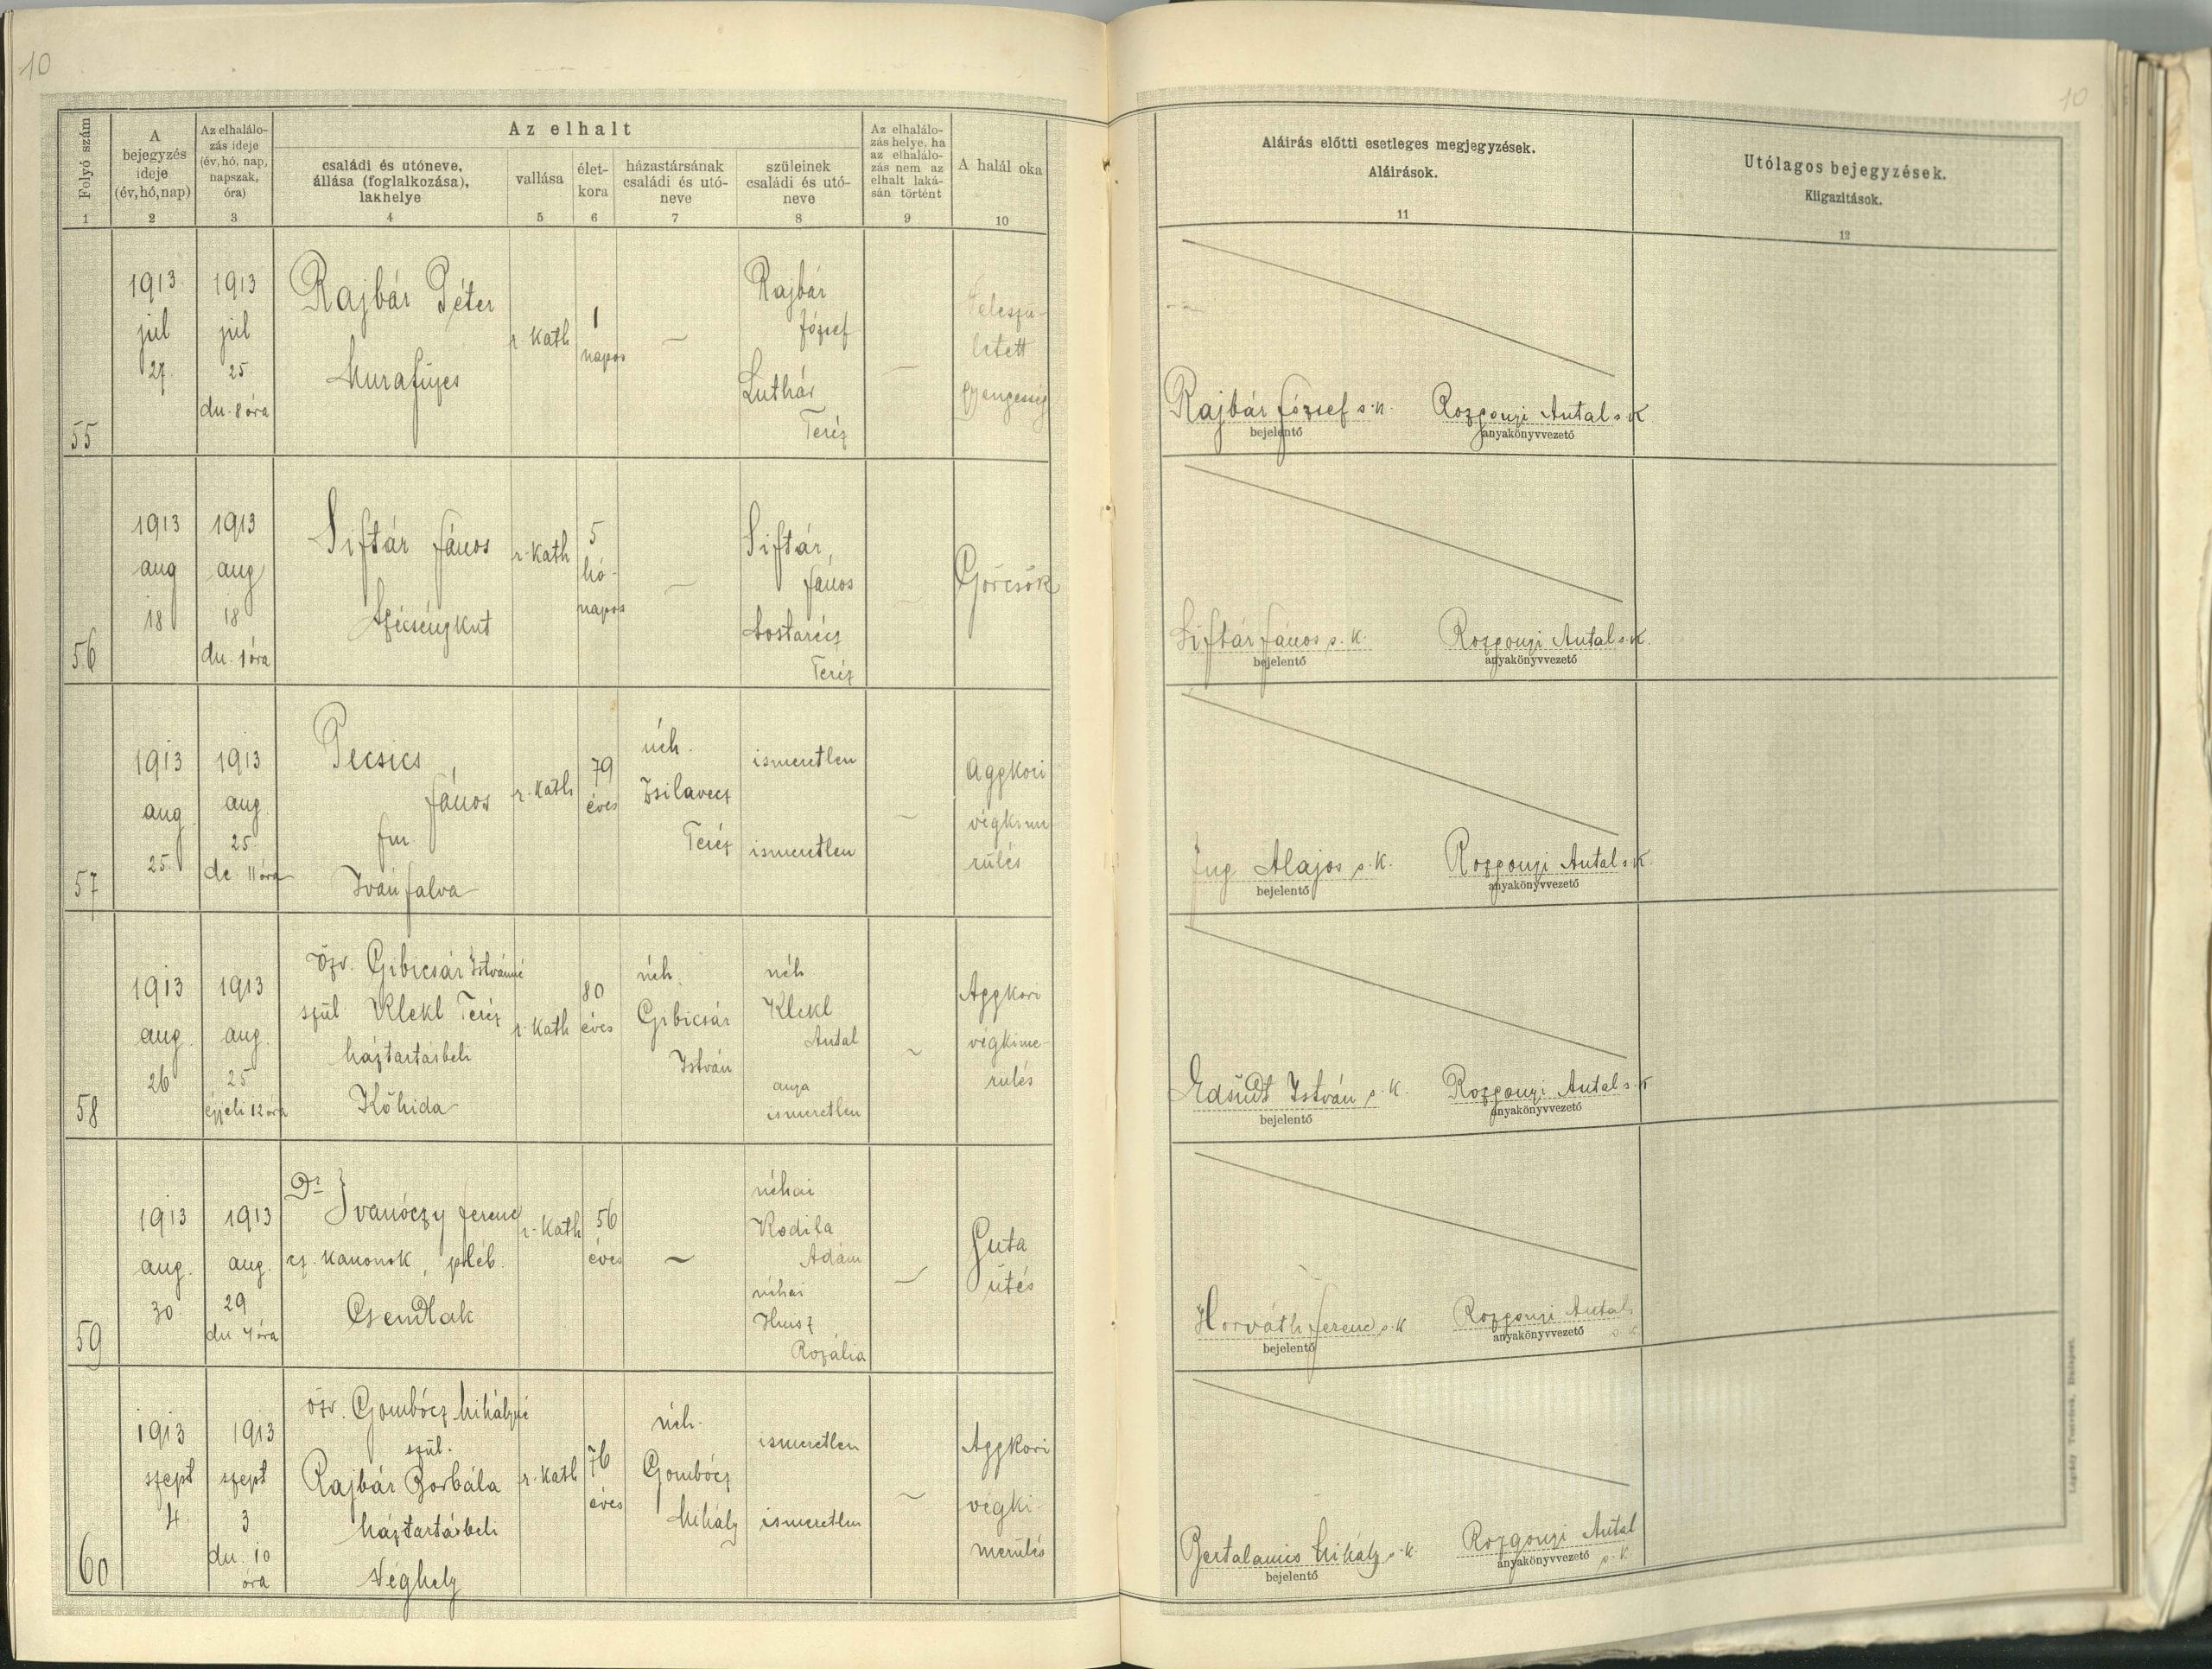 10
10
Folyó szám
1
A
bejegyzés
ideje
(év, hó, nap)
2
Az elhalálo-
zás ideje
(év, hó, nap,
napszak,
óra)
3
Az elhalt
családi és utóneve,
állása (foglalkozása),
lakhelye
4
vallása
5
élet-
kora
6
házastársának
családi és utó-
neve
7
szüleinek
családi és utó-
neve
8
Az elhalálo-
zás helye, ha
az elhalálo-
zás nem az
elhalt laká-
sán történt
9
A halál oka
10
Aláírás előtti esetleges megjegyzések.
Aláírások.
11
Utólagos bejegyzések.
Kiigazítások.
12
55
1913
júl
27
1913
júl
25
du. 8 óra
Rajbár Péter
Murafüzes
r. kath
1
napos
Rajbár
József
Luthár
Teréz
Veleszü-
letett
gyengeség
Rajbár József s. k.
bejelentő
Rozgonyi Antal s. k
anyakönyvvezető
56
1913
aug
18
1913
aug
18
du. 1 óra
Siftár János
Szécsénykut
r. kath
5
hó-
napos
Siftár
János
Sostarécz
Teréz
Görcsök
Siftár János s. k.
bejelentő
Rozgonyi Antal s. k.
anyakönyvvezető
57
1913
aug
25
1913
aug.
25
de. 11 óra
Pecsics
János
fm
Ivánfalva
r. kath
79
éves
néh.
Zsilavecz
Teréz
ismeretlen
ismeretlen
Aggkori
végkime-
rülés
Jug Alajos s. k.
bejelentő
Rozgonyi Antal s. k.
anyakönyvvezető
58
1913
aug.
26
1913
aug.
25
éjjeli 12 óra
özv. Gibicsár Istvánné
szül Klekl Teréz
háztartásbeli
Kőhida
r. kath
80
éves
néh.
Gibicsár
István
néh
Klekl
Antal
anya
ismeretlen
Aggkori
végkime-
rülés
István s. k.
bejelentő
Rozgonyi Antal s. k
anyakönyvvezető
59
1913
aug.
30
1913
aug.
29
du 4 óra
Dr Ivanóczy Ferenc
cz. kanonok, pléb.
Csendlak
r. kath
56
éves
néhai
Kodila
Adám
néhai
Husz
Rozália
Guta
ütés
Horváth Ferenc s. k
bejelentő
Rozgonyi Antal
s k
anyakönyvvezető
60
1913
szept
4
1913
szept
3
du. 10
óra
özv. Gombócz Mihályné
szül.
Rajbár Borbála
háztartásbeli
Véghely
r. kath
76
éves
néh.
Gombócz
Mihály
ismeretlen
ismeretlen
Aggkori
végki-
merülés
Bertalanics Mihály s. k.
bejelentő
Rozgonyi Antal
s. k.
anyakönyvvezető
Légrády Testvérek, Budapest.